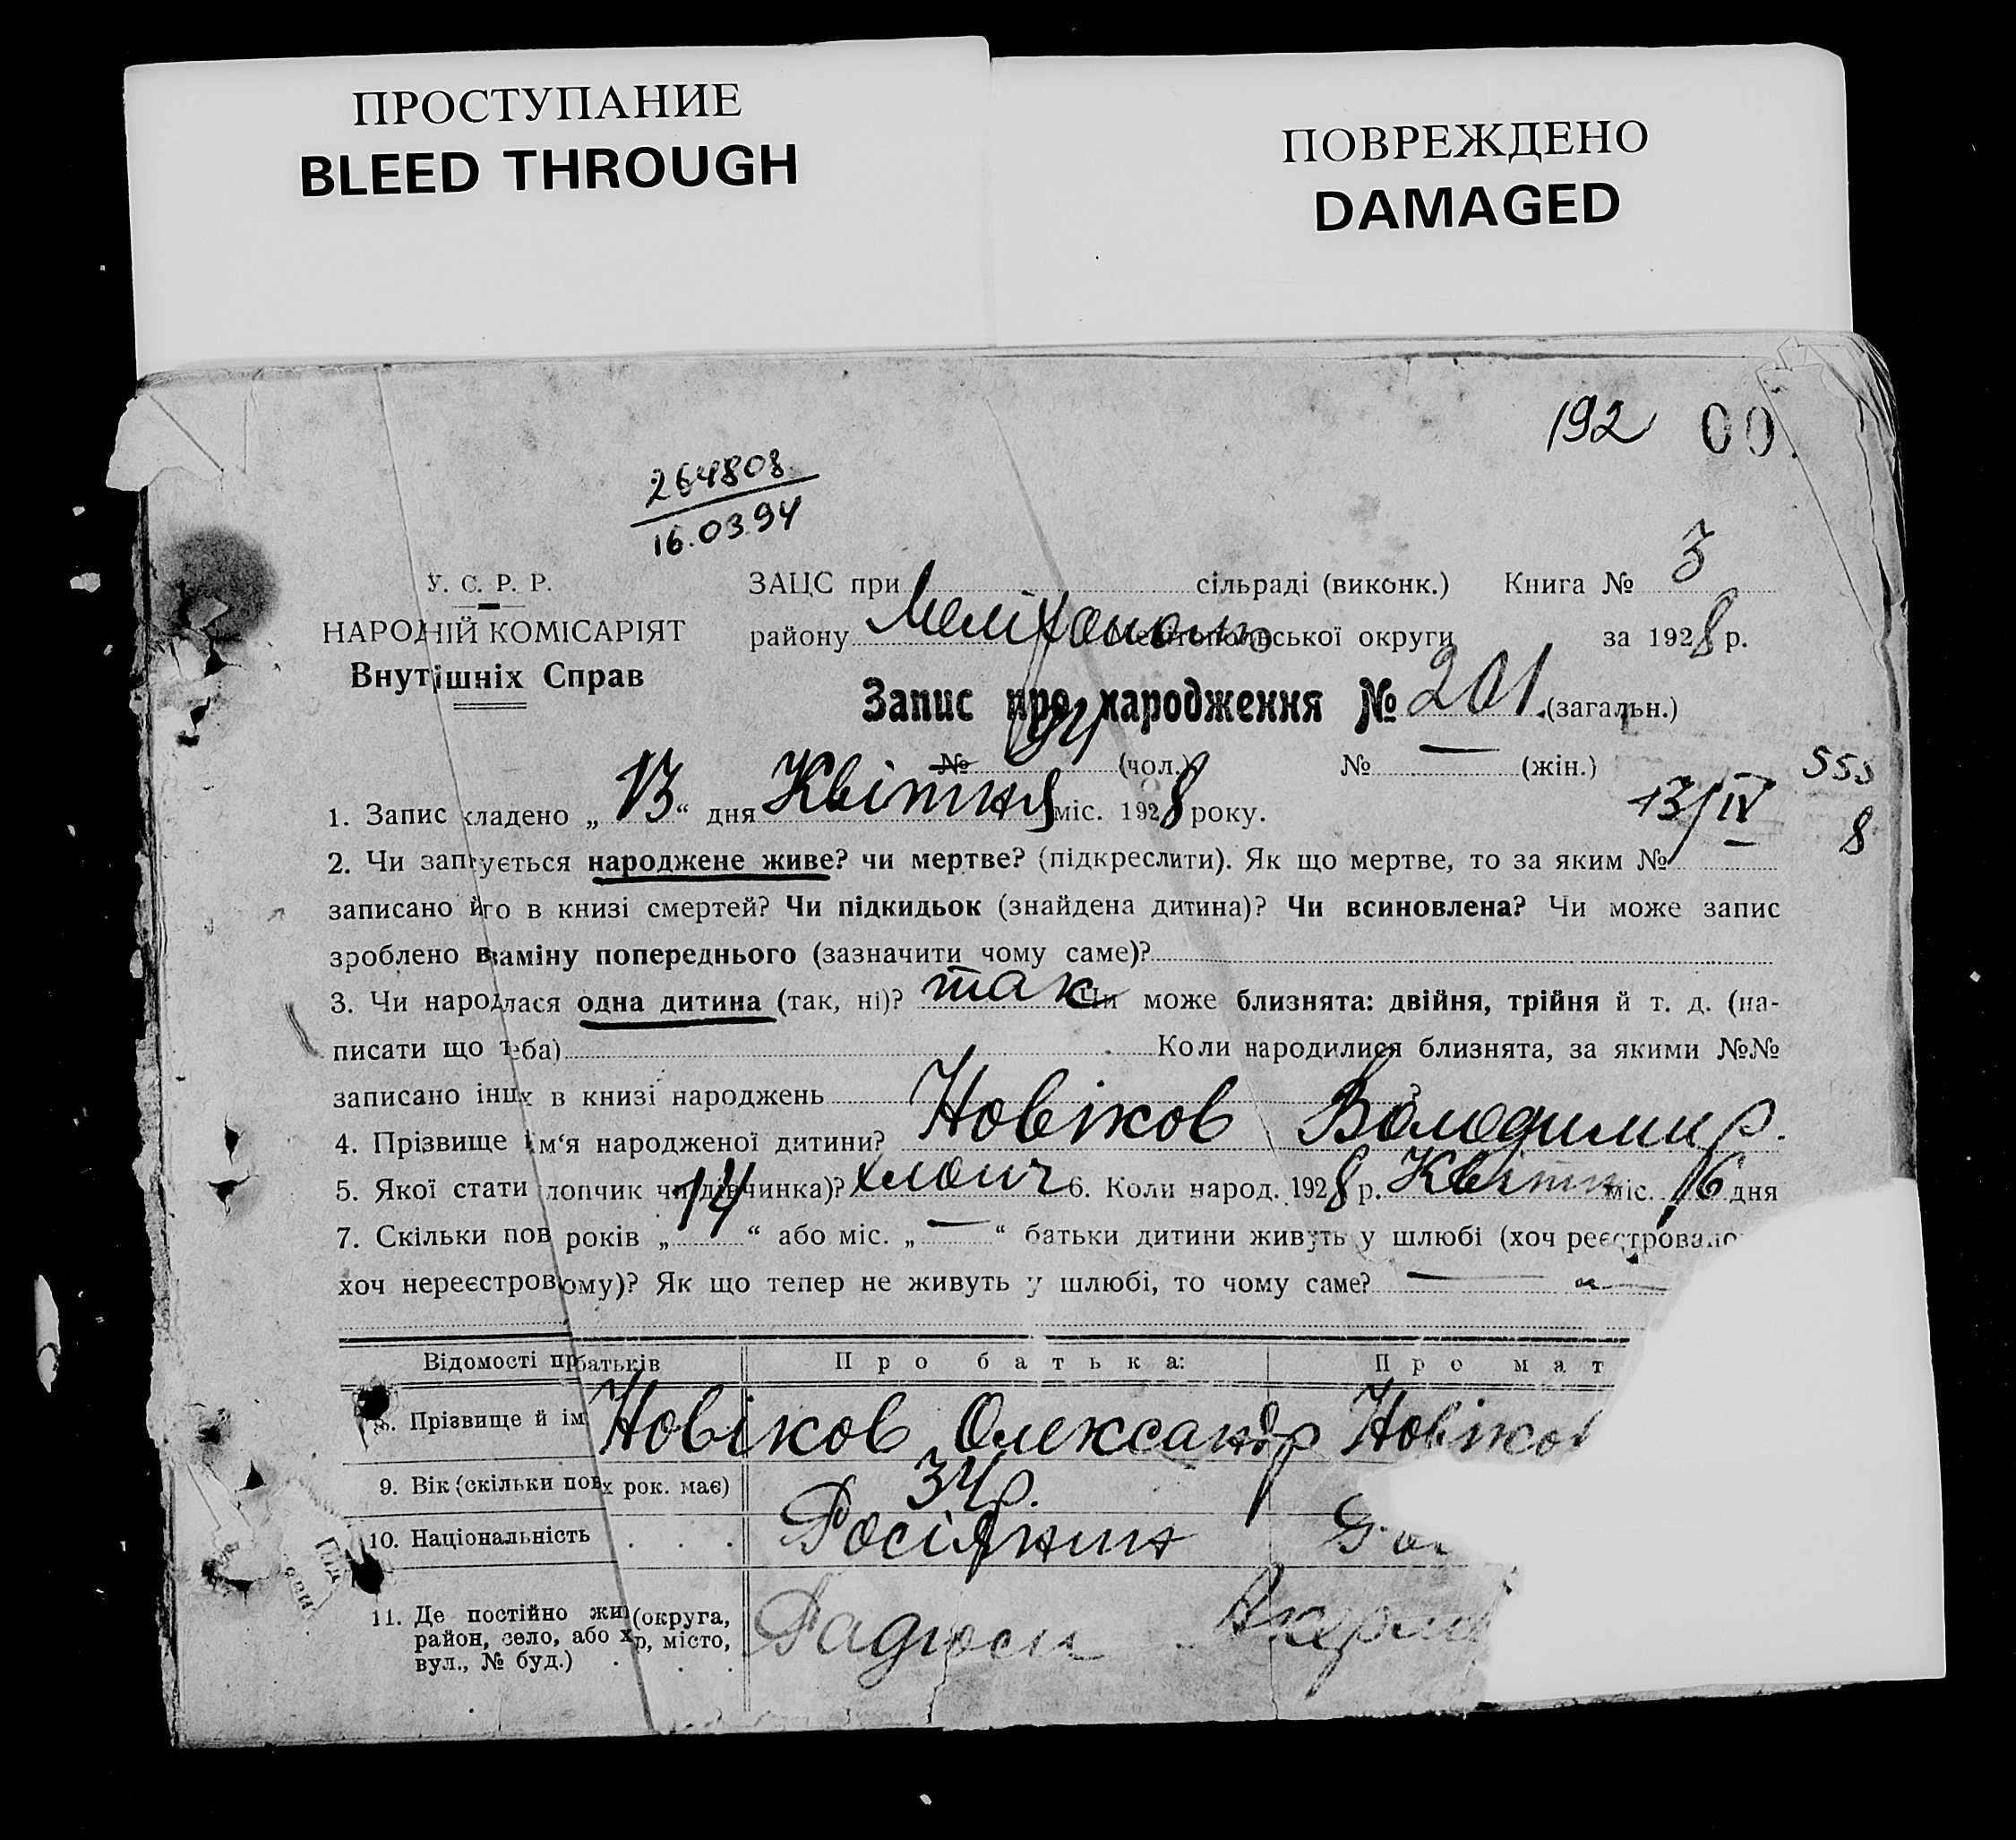 ПРОСТУПАНИЕ
BLEED THROUGH
ПОВРЕЖДЕНО
DAMAGED
192 00
264808
16.03.94
У. С. Р. Р.
НАРОДНІЙ КОМІСАРІЯТ
Внутішніх Справ
ЗАЦС при сільраді (виконк.) Книга № 3
району округи за 1928 р.
Запис про народження № 201 (загальн.)
№ 94 (чол.) № — (жін.)
555
13/IV
8
1. Запис кладено „13“ дня Квітня міс. 1928 року.
2. Чи запиується народжене живе? чи мертве? (підкреслити). Як що мертве, то за яким №
записано його в книзі смертей? Чи підкидьок (знайдена дитина)? Чи всиновлена? Чи може запис
зроблено взаміну попереднього (зазначити чому саме)?
3. Чи народлася одна дитина (так, ні)? так Чи може близнята: двійня, трійня й т. д. (на-
писати що теба) Коли народилися близнята, за якими №№
записано інших в книзі народжень
4. Прізвище ім'я народженої дитини? Новіков Володимир.
5. Якої стати лопчик чи дівчинка)? хлопч 6. Коли народ. 1928 р. Квітн міс. 6 дня
7. Скільки пов років „14“ або міс. „—“ батьки дитини живуть у шлюбі (хоч реєстровано
хоч нереєстровому)? Як що тепер не живуть у шлюбі, то чому саме? —
Відомості пр батьків Про батька: Про мат
8. Прізвище й ім Новіков Олександр Новіков
9. Вік (скільки пов х рок. має) 34 р.
10. Національність . . . Росіянин
11. Де постійно жи (округа,
район, село, або хр, місто,
вул., № буд.) . . .